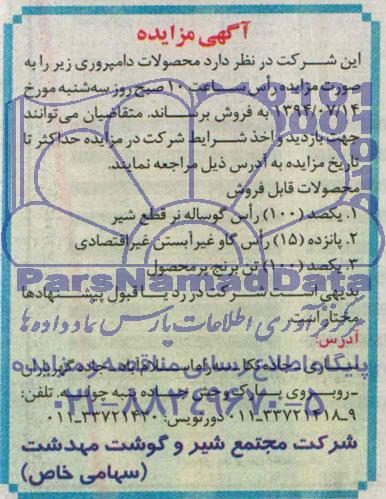 آگهی مزایده
این شرکت در نظر دارد محصولات دامپروری زیر را به
صورت مزایده رأس ساعت ۱۰ صبح روز سه‌شنبه مورخ
۱۳۹۴/۰۷/۱۴ به فروش برساند. متقاضیان می‌توانند
جهت بازدید و اخذ شرایط شرکت در مزایده حداکثر تا
تاریخ مزایده به آدرس ذیل مراجعه نمایند.
محصولات قابل فروش
۱. یکصد (۱۰۰) رأس گوساله نر قطع شیر
۲. پانزده (۱۵) رأس گاو غیر آبستن غیر اقتصادی
۳. یکصد (۱۰۰) تن برنج پر محصول
ParsNamadData
بدیهی است شرکت در رد یا قبول پیشنهادها
مختار است.
مرکز فرآوری اطلاعات پارس نماد داده‌ها
آدرس:
پایگاه اطلاع رسانی مناقصه و مزایده
ساری جاده
روبروی پارک وحش جاده قبه چوله. تلفن:
۰۲۱-۸۸۳۴۹۶۷۰-۵
۹-۳۳۷۲۱۴۱۸-۰۱۱ دورنویس: ۳۳۷۲۱۴۲۰-۰۱۱
شرکت مجتمع شیر و گوشت مهدشت
(سهامی خاص)